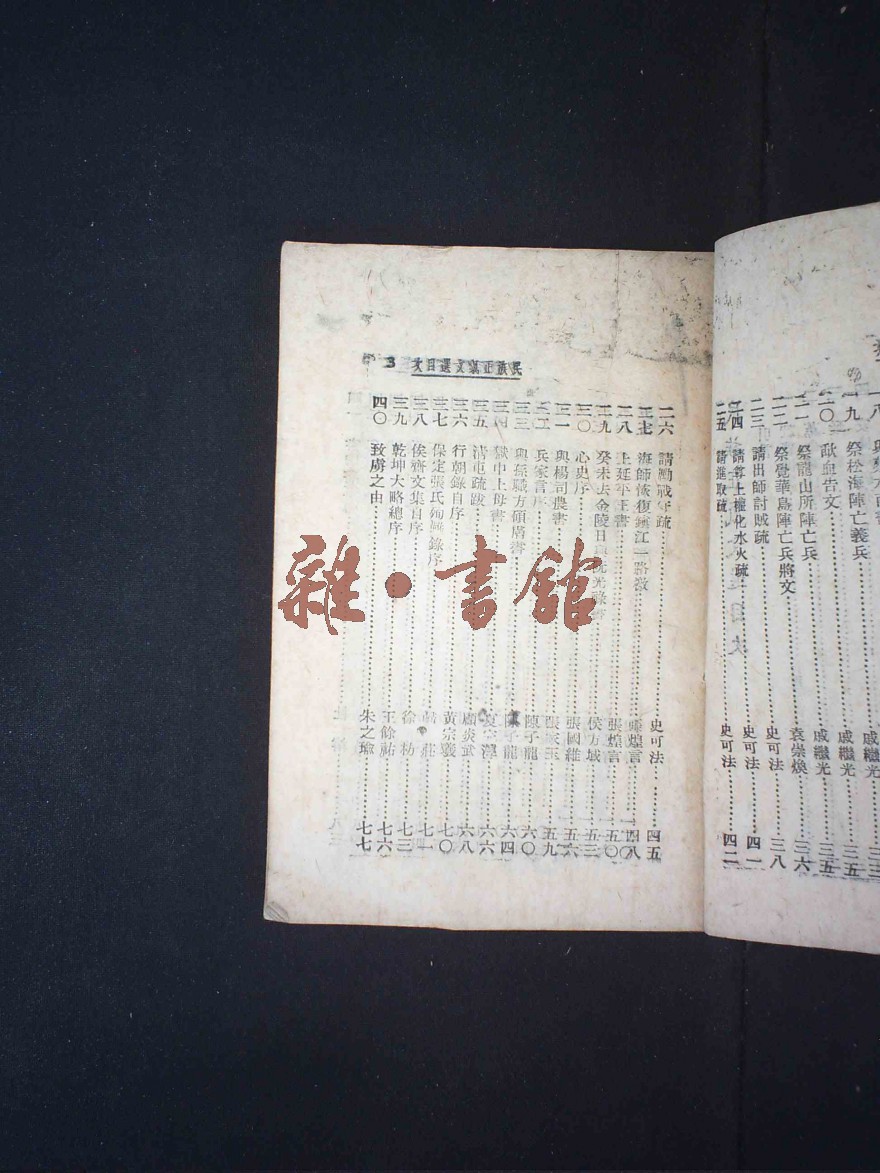 一八
戚繼光
三三
一九 祭松海陣亡義兵 戚繼光 三五
二〇 歃血告文 戚繼光 三五
二一 祭龍山所陣亡兵
二二 祭覺華島陣亡兵將文 袁崇煥 三六
二三 請出師討賊疏 史可法 三八
二四 請尊上權化水火疏 史可法 四一
二五 請進取疏 史可法 四二
目次
民族正氣文選目次 3
二六 請勵戰守疏 史可法 四五
二七 海師恢復鎮江一路檄 張煌言 四八
二八 上延平王書 張煌言 五〇
二九 癸未去金陵日 侯方域 五三
三〇 心史序 張國維 五六
三一 與楊司農書 張家玉 五九
三二 兵家言序 陳子龍 六〇
三三 與孫職方碩膚書 陳子龍 六四
三四 獄中上母書 夏完淳 六六
三五 清車疏跋 顧炎武 六八
三六 行朝錄自序 黃宗羲 七〇
三七 保定張氏殉難錄序 七一
三八 俟齋文集自序 徐枋 七三
三九 乾坤大略總序 王餘祐 七六
四〇 致虜之由 朱之瑜 七七
雜·書館